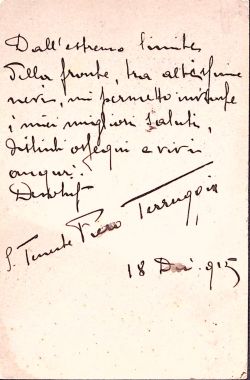 Dall'estremo limite
della fronte, tra altissime
nevi, mi permetto
i miei migliori saluti,
distinti ossequi e vivi
auguri.
S. Tenente Piero
18 Dic. 915